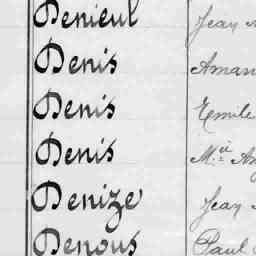 Denieul Jean
Denis Aman
Denis Emile
Denis M.ie An
Denize Jean
Denous Paul